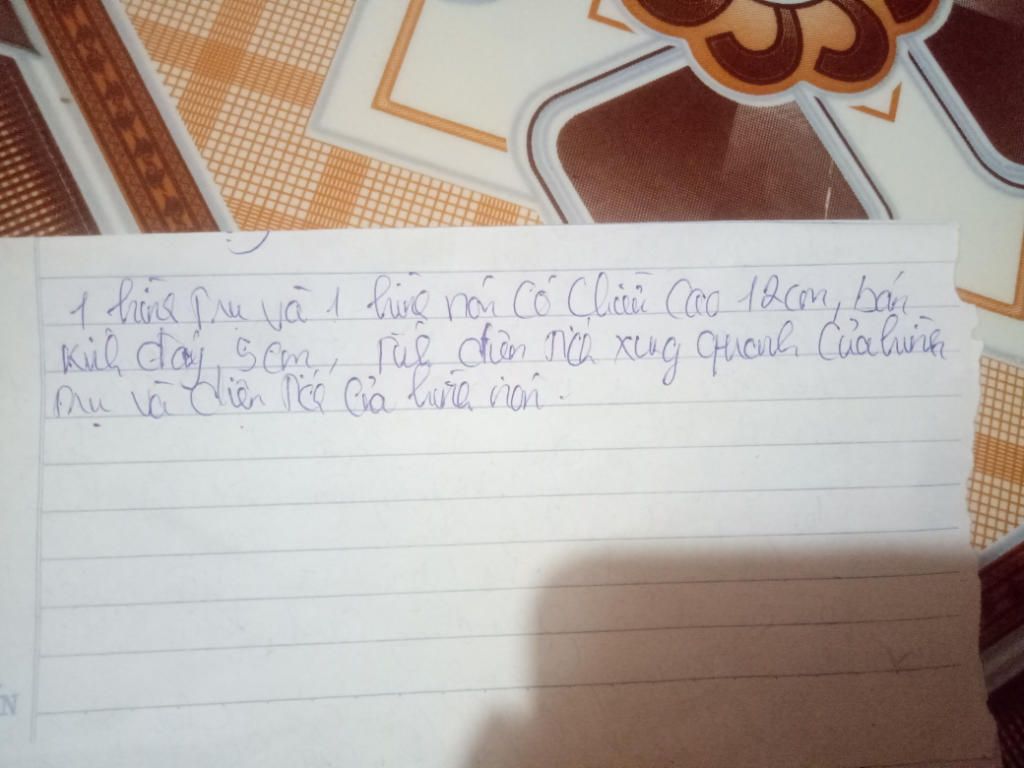 1 hình trụ và 1 hình nón có chiều cao 12cm, bán
kính đáy 5cm, Tính diện tích xung quanh của hình
trụ và diện tích của hình nón.